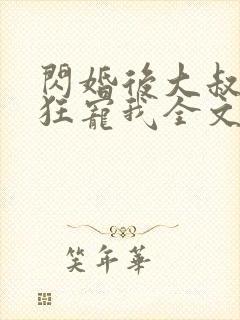 閃婚後大叔
狂寵我全文
笑年華